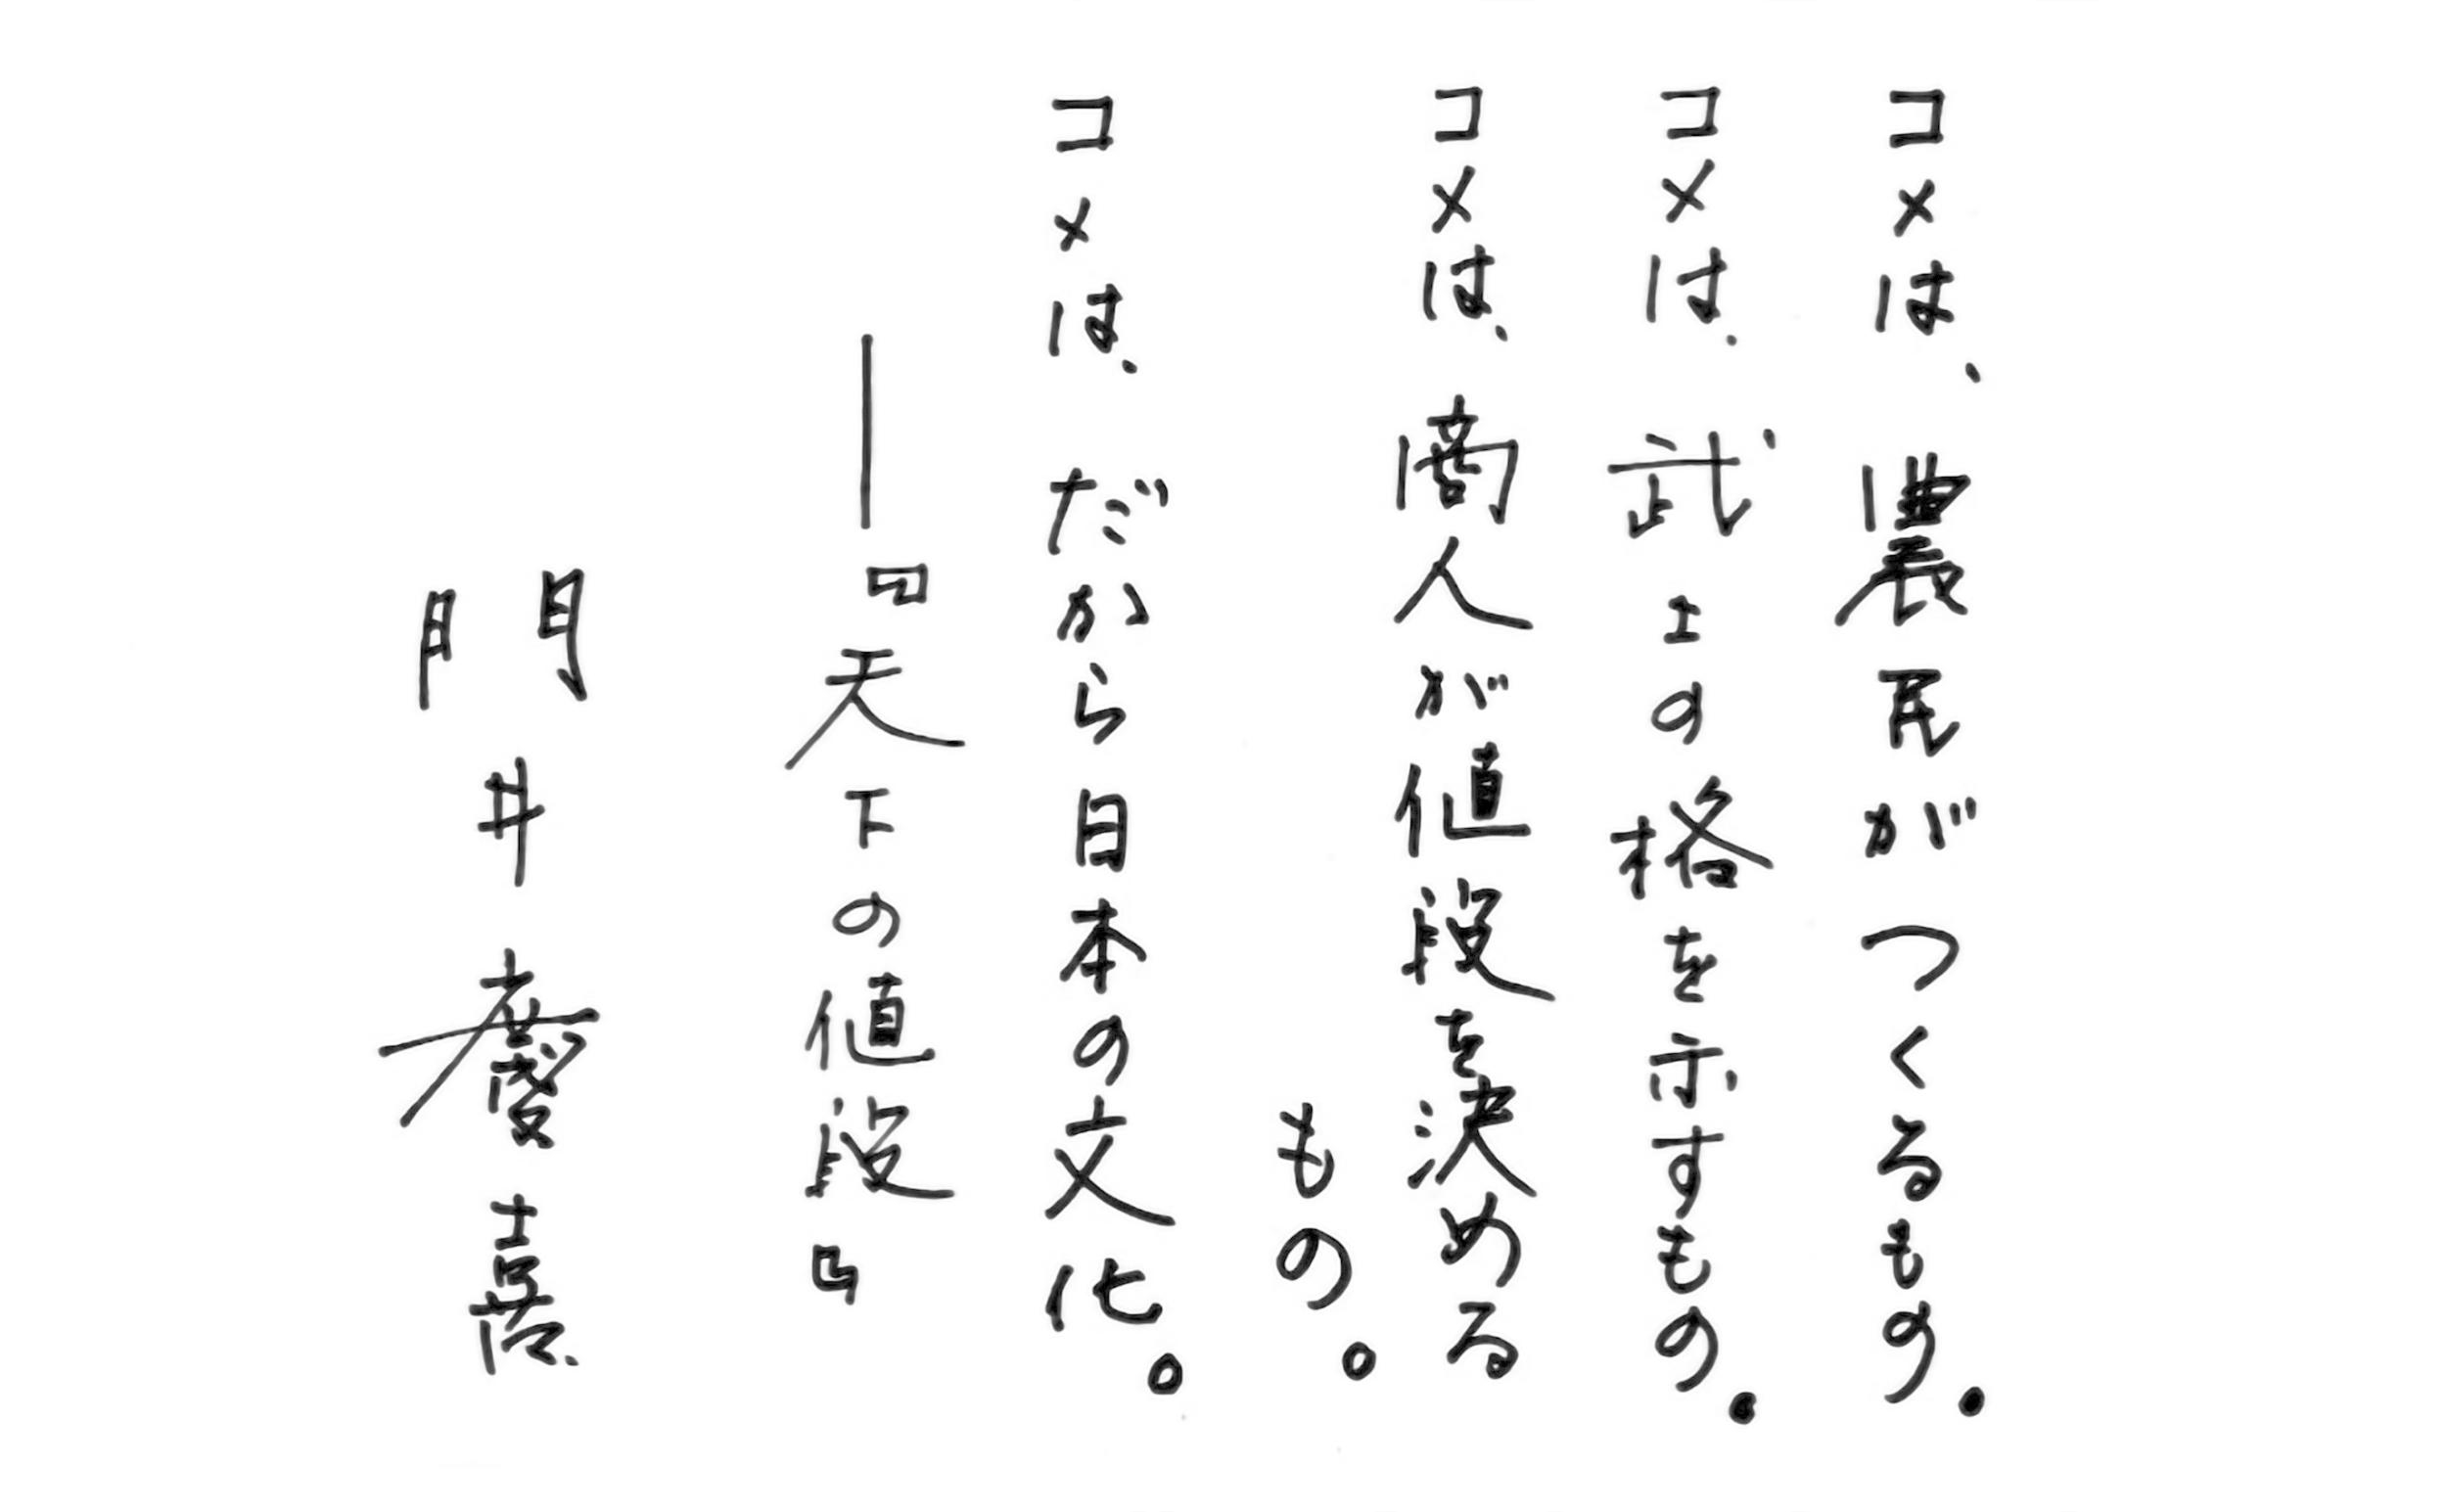 コメは、農民がつくるもの。
コメは、武士の格を示すもの。
コメは、商人が値段を決める
もの。
コメは、だから日本の文化。
――『天下の値段』
門井慶喜